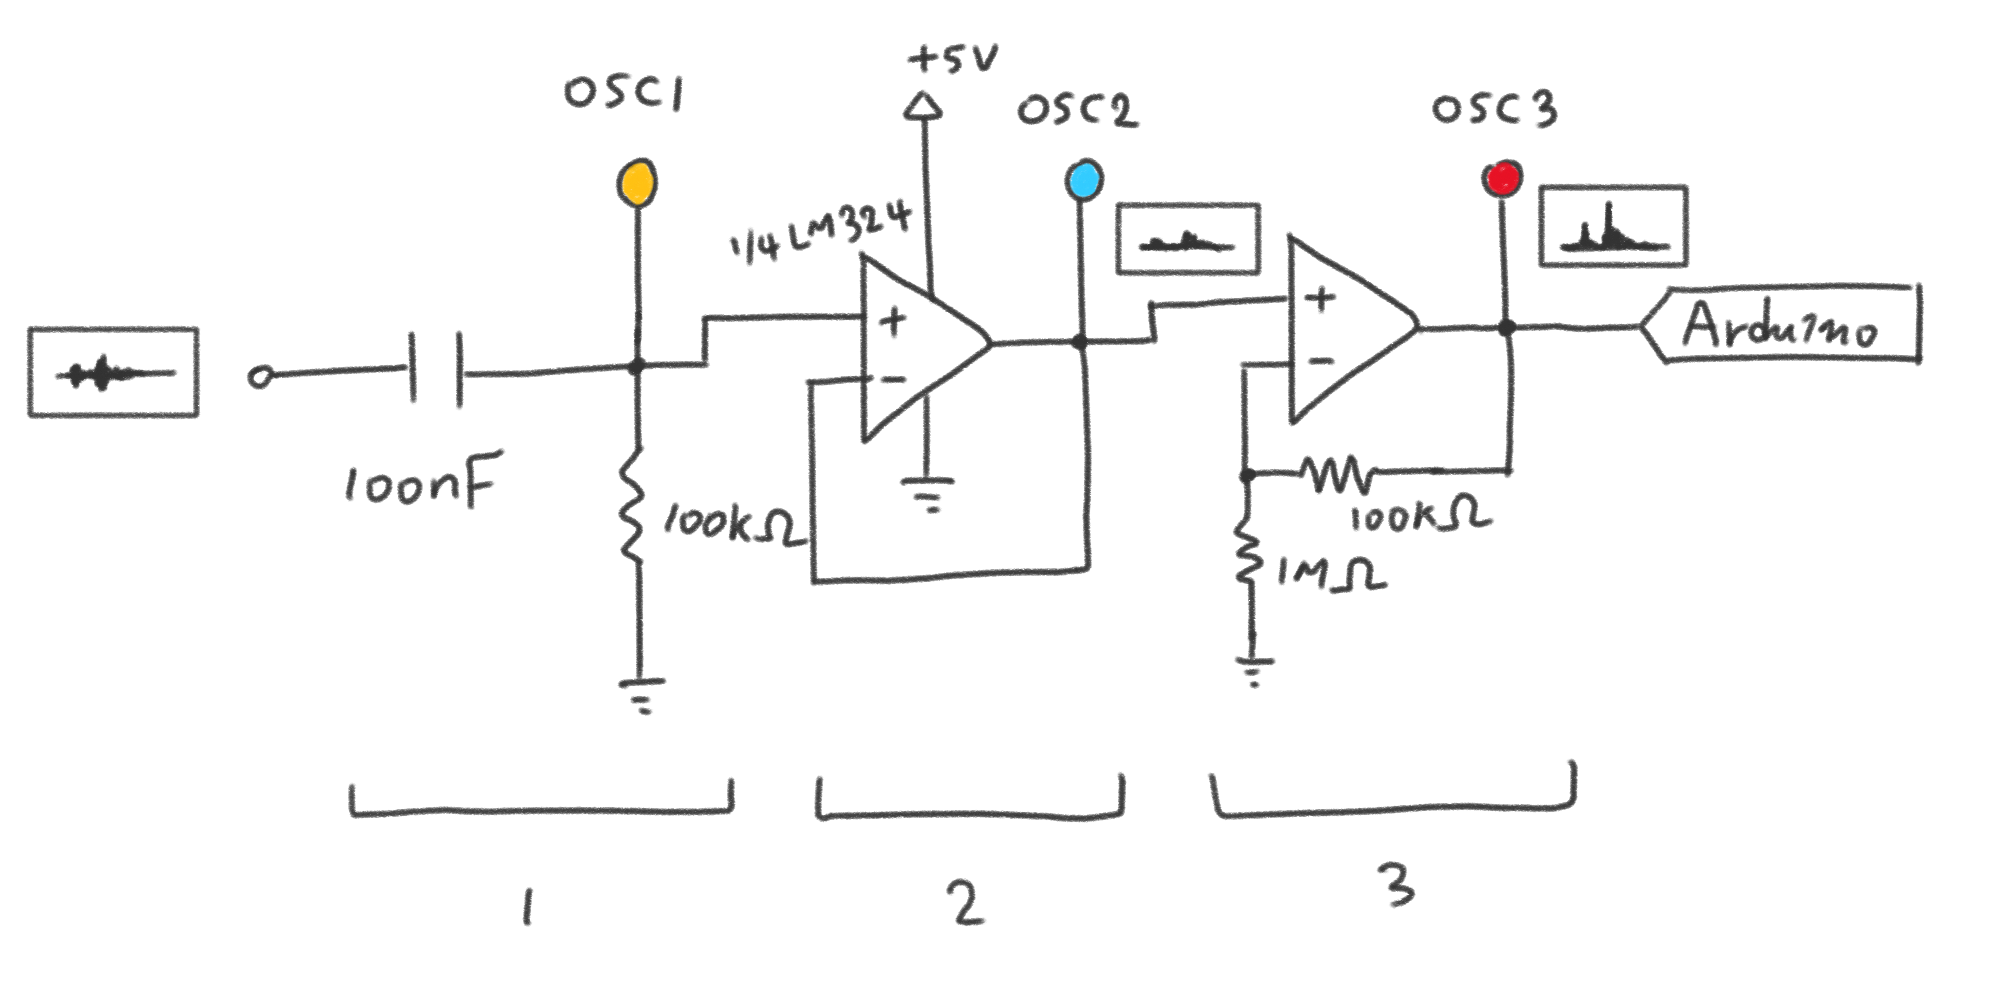 +5V
OSC1
OSC2
OSC3
1/4 LM324
+
-
+
-
Arduino
100nF
100kΩ
100kΩ
1MΩ
1
2
3